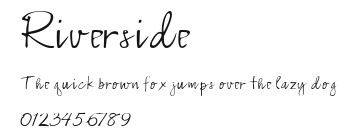 Riverside
The quick brown fox jumps over the lazy dog
0123456789